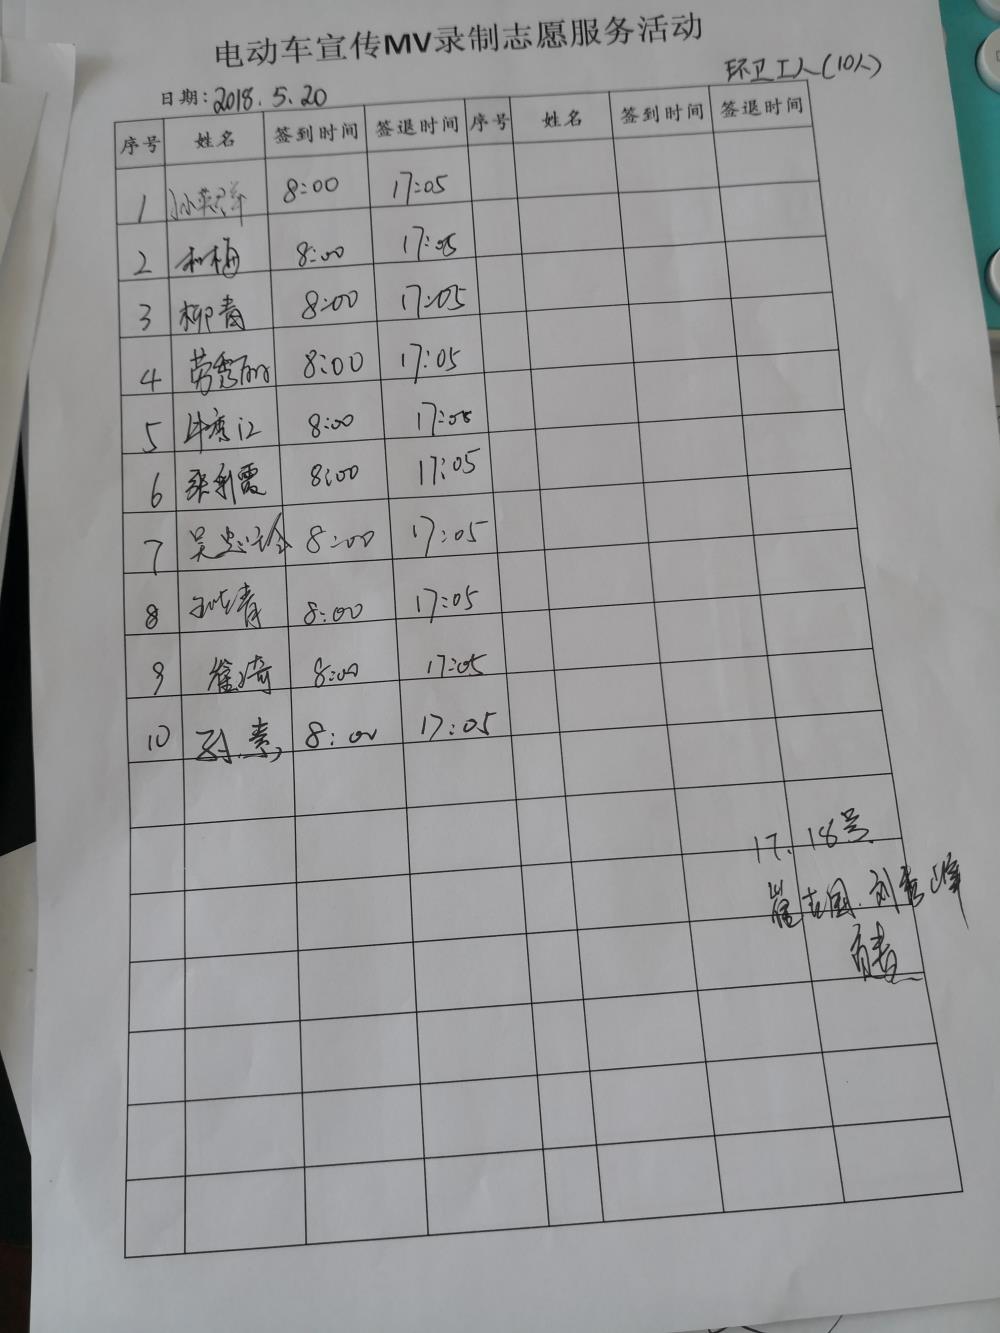 电动车宣传MV录制志愿服务活动
环卫工人(10人)
日期:2018.5.20
序号 姓名 签到时间 签退时间 序号 姓名 签到时间 签退时间
1 8:00 17:05
2 和梅 8:00 17:05
3 柳青 8:00 17:05
4 劳秀丽 8:00 17:05
5 8:00 17:05
6 利霞 8:00 17:05
7 吴忠玲 8:00 17:05
8 青 8:00 17:05
9 崔琦 8:00 17:05
10 8:00 17:05
17、18号
崔志国、刘秀峰